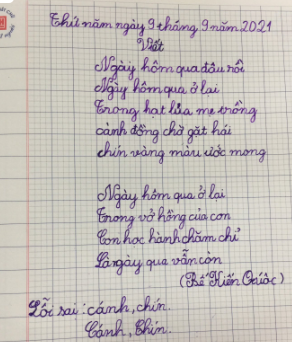 Thứ năm ngày 9 tháng 9 năm 2021
Viết
Ngày hôm qua đâu rồi
Ngày hôm qua ở lại
Trong hạt lúa mẹ trồng
cành đồng chờ gặt hái
chín vàng màu ước mong
Ngày hôm qua ở lại
Trong vở hồng của con
Con học hành chăm chỉ
Là ngày qua vẫn còn
(Bế Kiến Quốc)
Lỗi sai: cánh, chín.
Cánh, Chín.